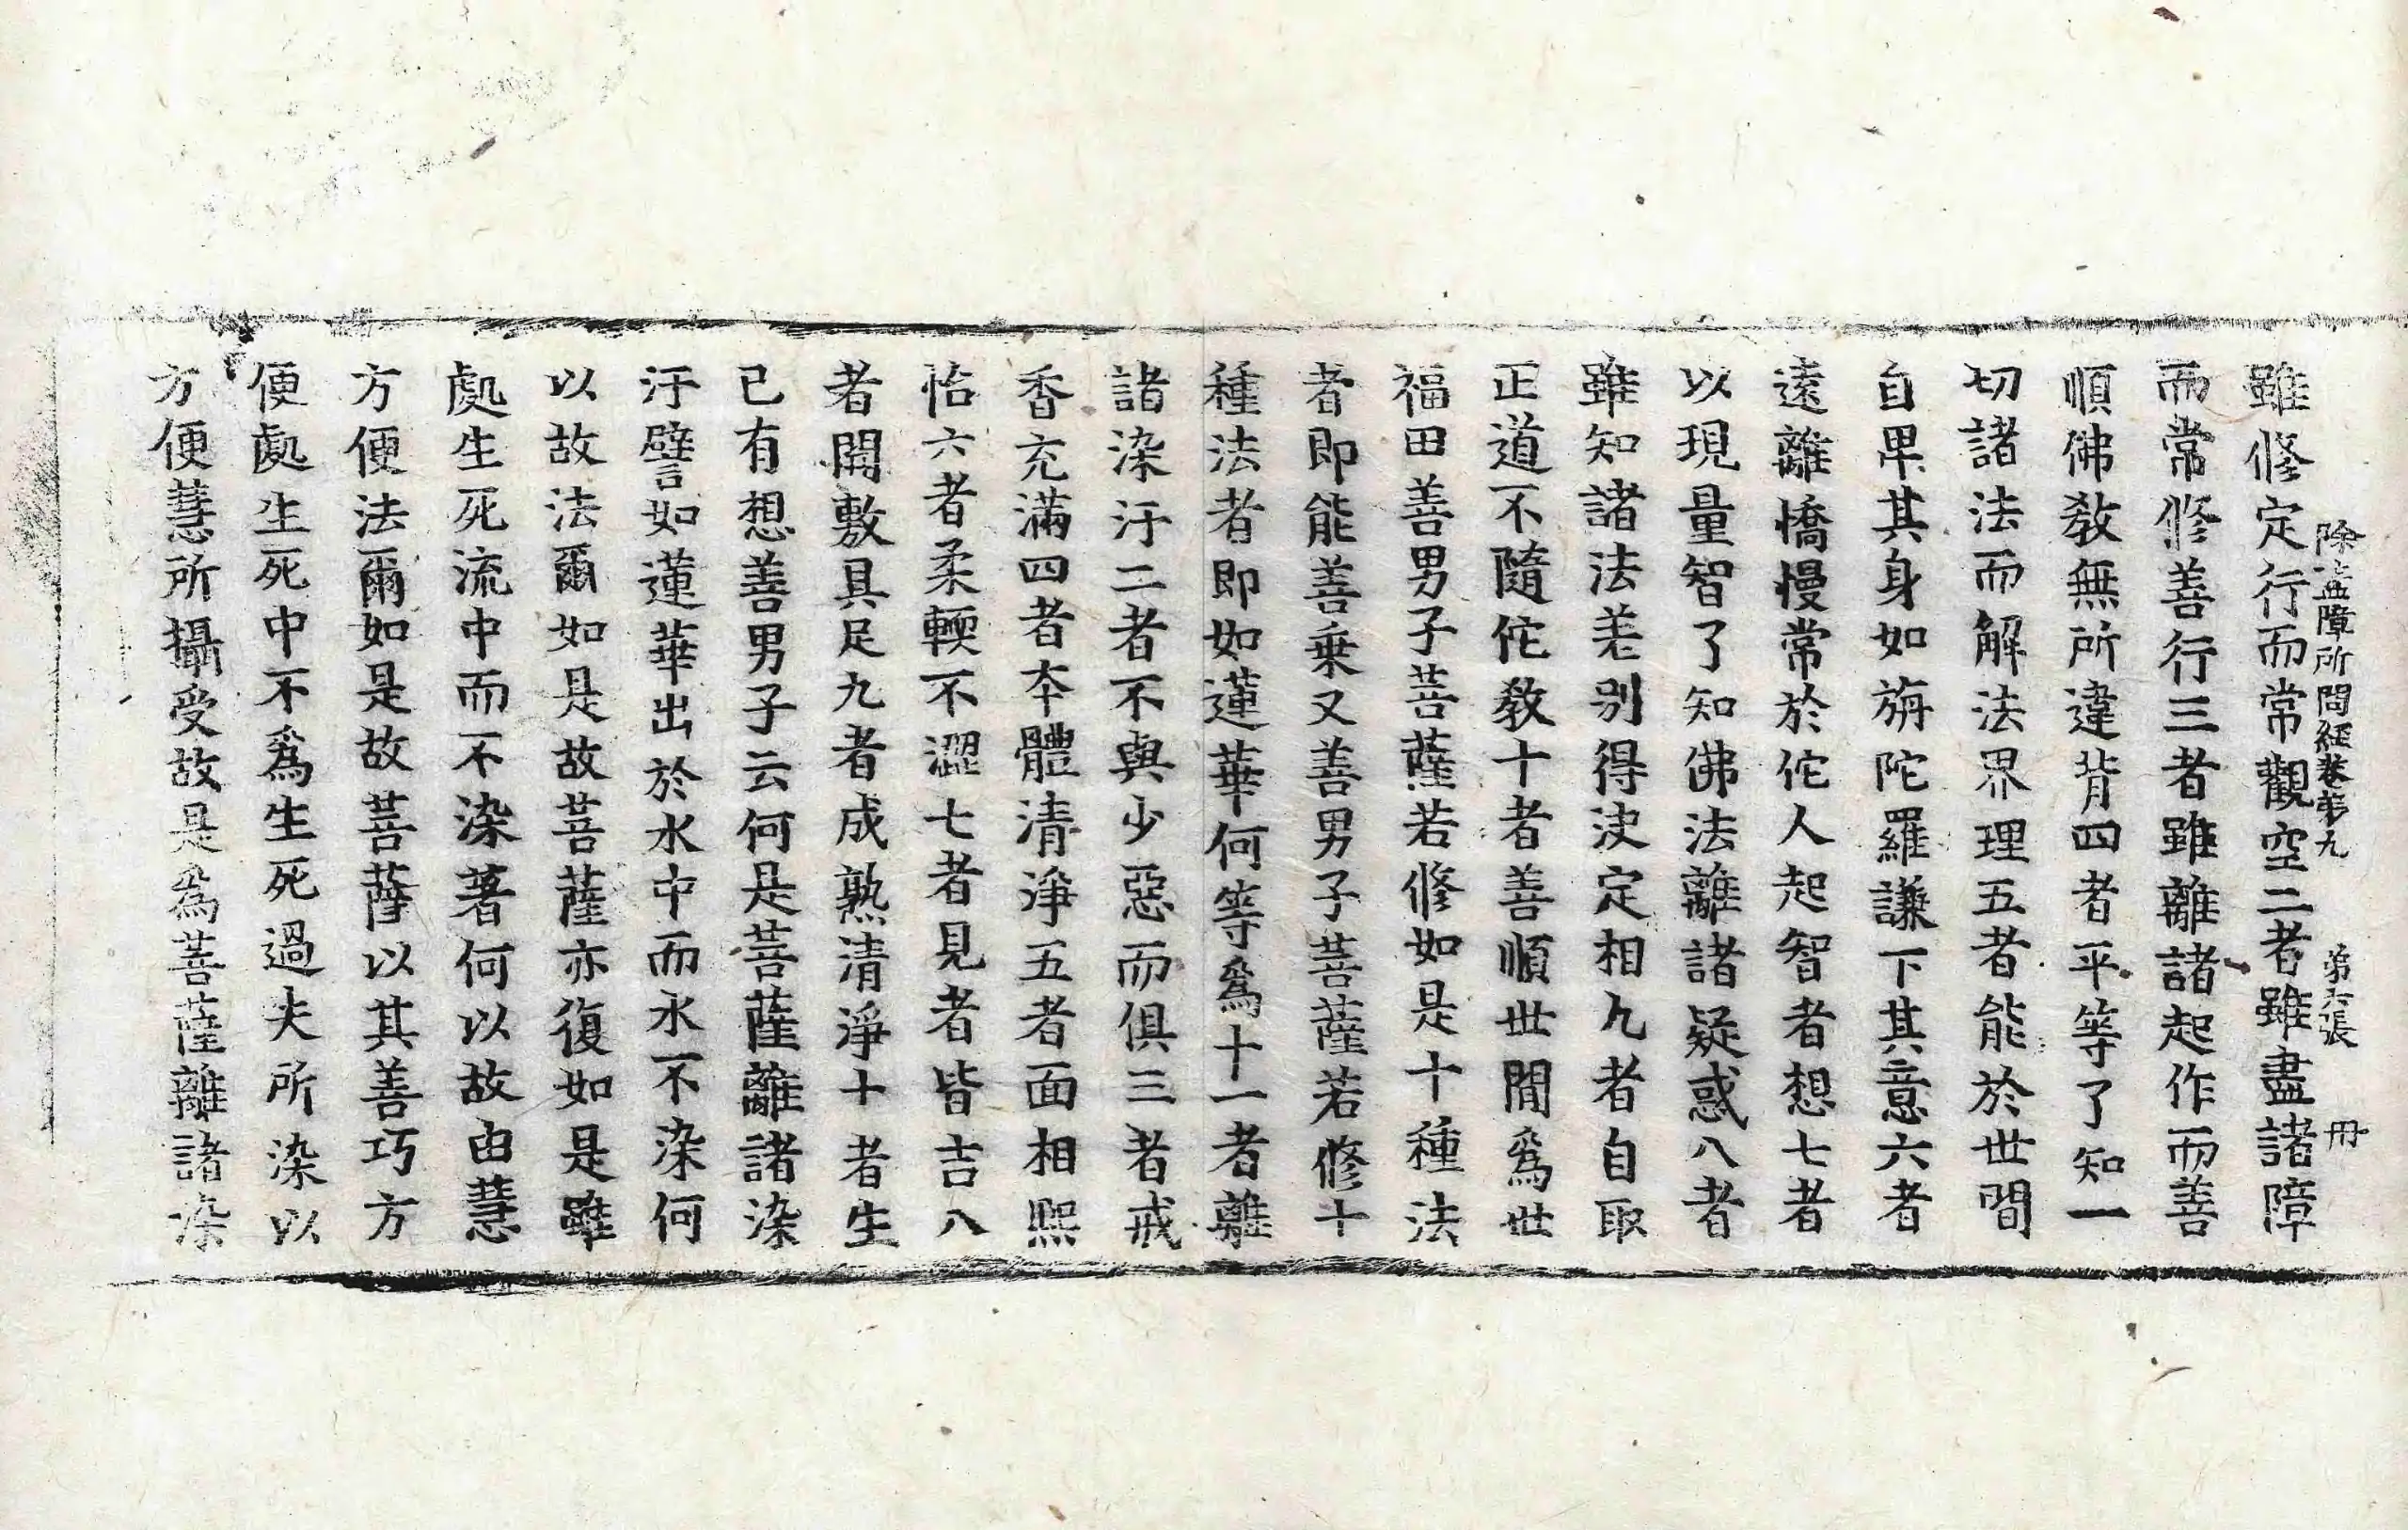 除盖障所問經卷第九 第六張 冊
雖修定行而常觀空二者雖盡諸障
而常修善行三者雖離諸起作而善
順佛教無所違背四者平等了知一
切諸法而解法界理五者能於世間
自卑其身如旃陀羅謙下其意六者
遠離憍慢常於佗人起智者想七者
以現量智了知佛法離諸疑惑八者
雖知諸法差別得決定相九者自取
正道不隨佗教十者善順世間爲世
福田善男子菩薩若修如是十種法
者即能善乗又善男子菩薩若修十
種法者即如蓮華何等爲十一者離
諸染汙二者不與少惡而俱三者戒
香充滿四者本體清淨五者面相熙
怡六者柔輭不澀七者見者皆吉八
者開敷具足九者成熟清淨十者生
已有想善男子云何是菩薩離諸染
汙譬如蓮華出於水中而水不染何
以故法爾如是故菩薩亦復如是雖
處生死流中而不染著何以故由慧
方便法爾如是故菩薩以其善巧方
便處生死中不爲生死過失所染以
方便慧所攝受故是爲菩薩離諸染